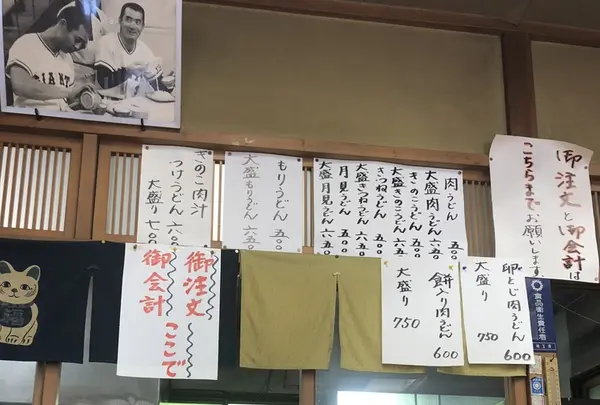 御注文と御会計は
こちらまで
お願いします
肉うどん 五五〇
大盛肉うどん 六五〇
きのこうどん 五五〇
大盛きのこうどん 六五〇
きつねうどん 五〇〇
大盛きつねうどん 六五〇
月見うどん 五〇〇
大盛月見うどん 六五〇
もりうどん 五〇〇
大盛もりうどん 五五〇
きのこ肉汁
つけうどん 六〇〇
大盛り 七〇〇
卵とじ肉うどん 600
大盛り 750
餅入り肉うどん 600
大盛り 750
御注文
御会計
ここで
食品衛生責任者